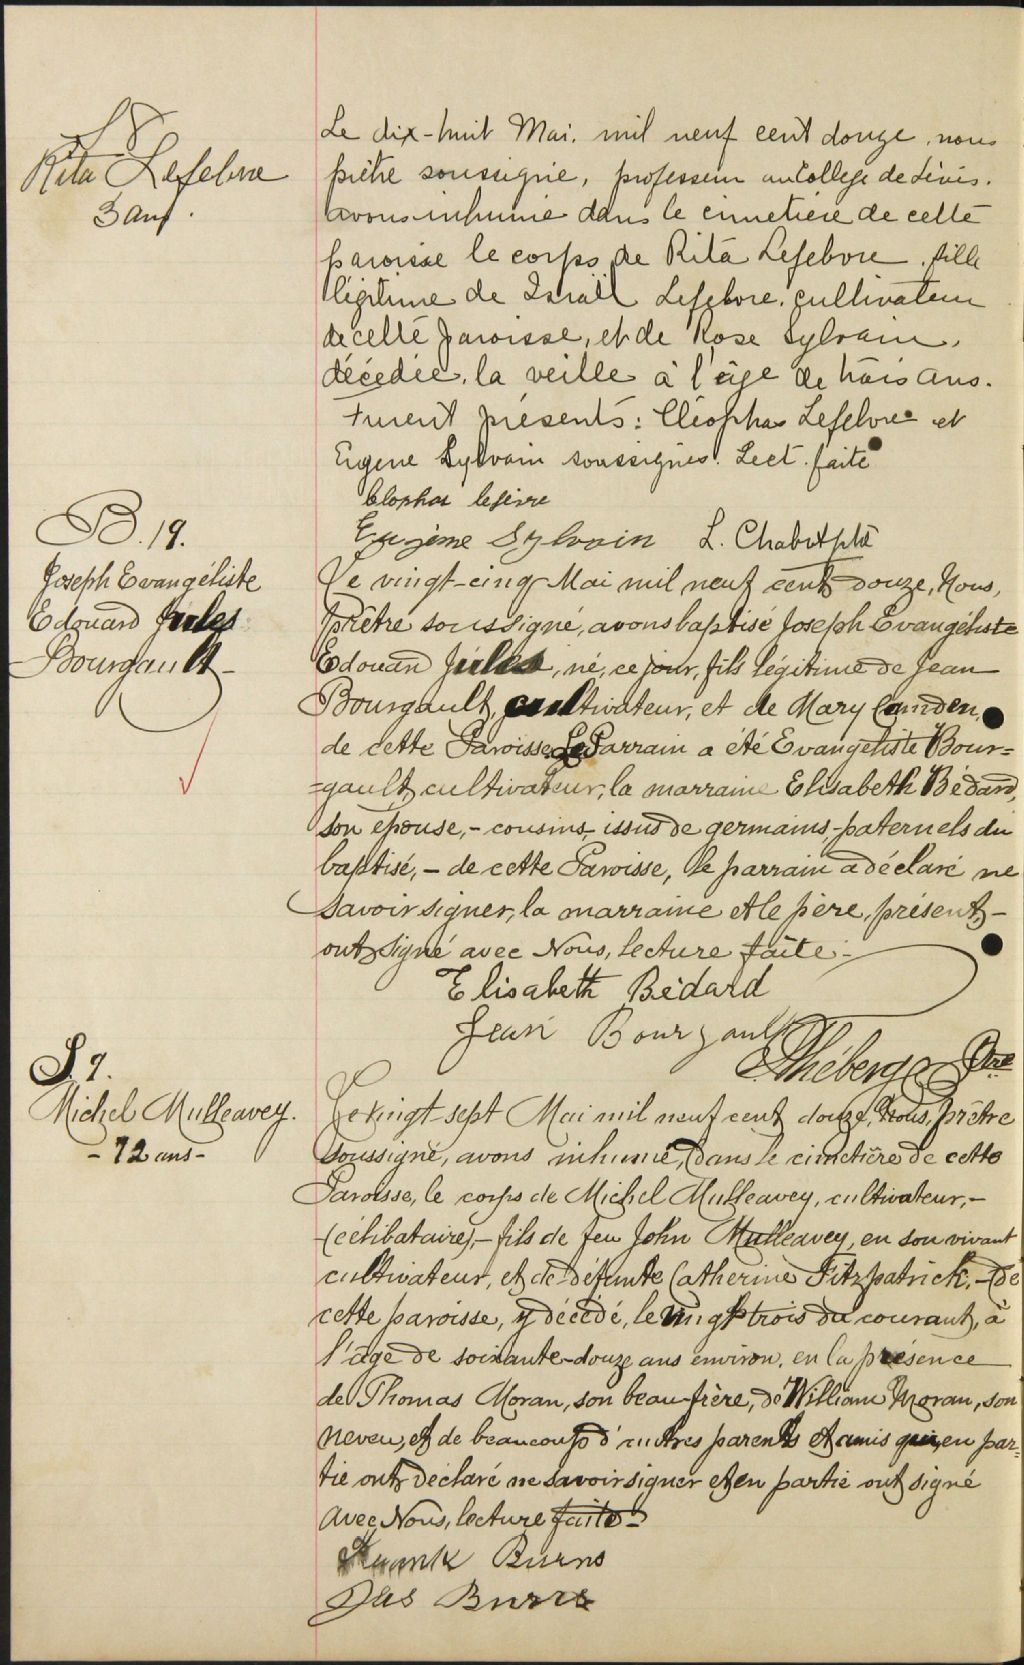 S. 8
Rita Lefebvre
3 ans.
Le dix-huit Mai. mil neuf cent douze, nous
prêtre soussigné, professeur au Collège de Lévis.
avons inhumé dans le cimetière de cette
paroisse le corps de Rita Lefebvre, fille
légitime de Israël Lefebvre, cultivateur
de cette paroisse, et de Rose Sylvain,
décédée, la veille à l'âge de trois ans.
Furent présents: Cléophas Lefebvre et
Eugène Sylvain soussignés. Lect. faite
Clophas lefevre
Eugène Sylvain L. Chabot ptre
B. 19.
Joseph Evangéliste
Edouard Jules
Bourgault
Le vingt-cinq Mai mil neuf cent douze, Nous,
prêtre soussigné, avons baptisé Joseph Evangéliste
Edouard Jules, né, ce jour, fils légitime de Jean
Bourgault, cultivateur, et de Mary
de cette Paroisse. Le Parrain a été Evangéliste Bour=
=gault, cultivateur, la marraine Elisabeth Bédard,
son épouse, - cousins-issus de germains, paternels du
baptisé, - de cette Paroisse, le parrain a déclaré ne
savoir signer, la marraine et le père, présent, -
ont signé avec Nous, lecture faite -
Elisabeth Bédard
Jean Bourgault
Théberge Ptre
S. 9.
Michel Mulleavey.
- 72 ans -
Le vingt-sept Mai mil neuf cent douze, Nous, prêtre
soussigné, avons inhumé, dans le cimetière de cette
Paroisse, le corps de Michel Mulleavey, cultivateur, -
(célibataire), - fils de feu John Mulleavey, en son vivant
cultivateur, et de défunte Catherine Fitzpatrick, - de
cette paroisse, y décédé, le vingt-trois du courant, à
l'âge de soixante-douze ans environ, en la présence
de Thomas Moran, son beau-frère, de William Moran, son
neveu, et de beaucoup d'autres parents et amis qui, en par=
tie ont déclaré ne savoir signer et en partie ont signé
avec Nous, lecture faite -
Frank Burns
Jas Burns